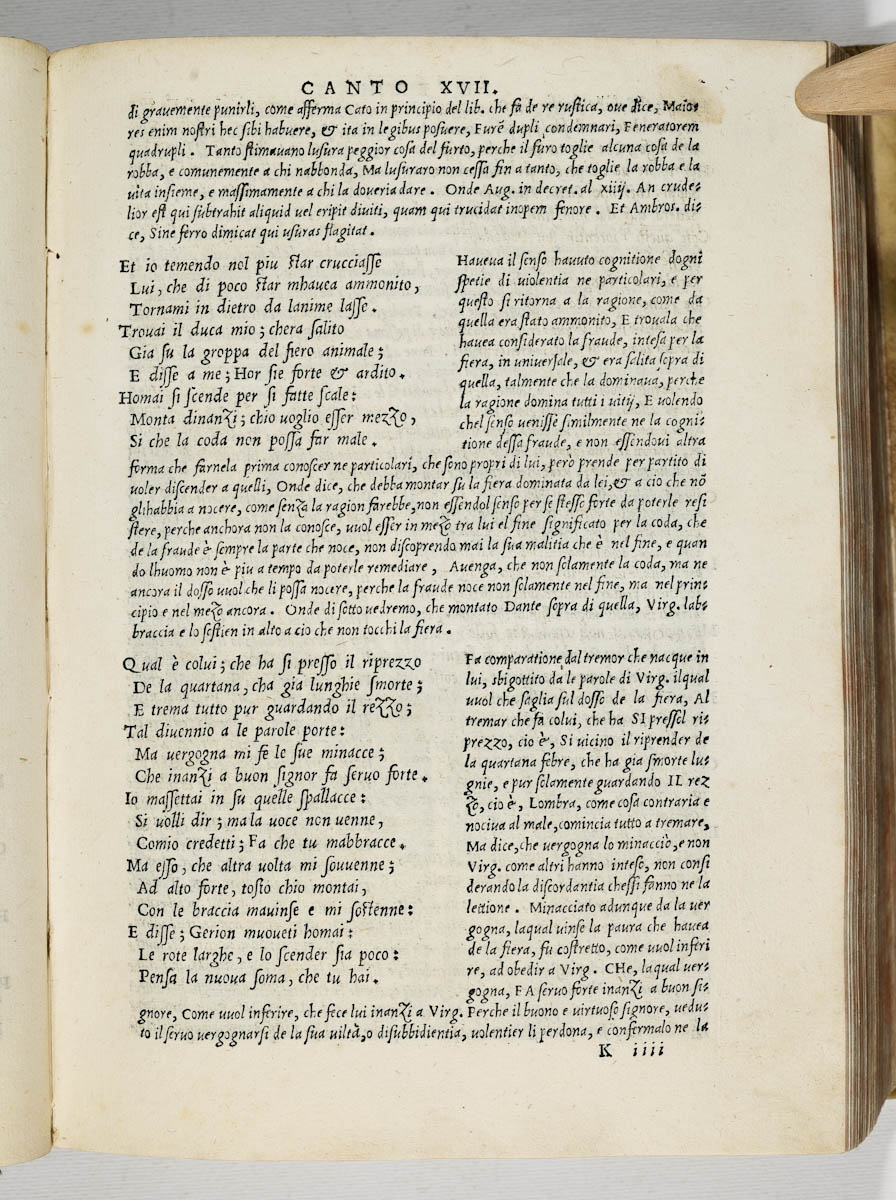 CANTO XVII.
di gravemente punirli, come afferma Cato in principio del lib. che fa de re rustica, oue dice, Maio⸗
res enim nostri hec sibi habuere, & ita in legibus posuere, Furē dupli condemnari, Feneratorem
quadrupli. Tanto stimauano lusura peggior cosa del furto, perche il furo toglie alcuna cosa de la
robba, e comunemente a chi nabbonda, Ma lusuraro non cessa fin a tanto, che toglie la robba e la
uita insieme, e massimamente a chi la doueria dare. Onde Aug. in decret. al xiiij. An crude⸗
lior est qui subtrahit aliquid uel eripit diuiti, quam qui trucidat inopem fenore. Et Ambros. di⸗
ce, Sine ferro dimicat qui usuras flagitat.
Et io temendo nol piu star crucciasse
Lui, che di poco star mhauea ammonito,
Tornami in dietro da lanime lasse.
Trouai il duca mio; chera salito
Gia su la groppa del fiero animale;
E disse a me; Hor sie forte & ardito.
Homai si scende per si fatte scale:
Monta dinanzi; chio uoglio esser mezzo,
Si che la coda non possa far male.
Haueua il senso hauuto cognitione dogni
spetie di uiolentia ne particolari, e per
questo si ritorna a la ragione, come da
quella era stato ammonito, E trouala che
hauea considerato la fraude, intesa per la
fiera, in uniuersale, & era salita sopra di
quella, talmente che la dominaua, perche
la ragione domina tutti i uitij, E uolendo
chel senso uenisse similmente ne la cogni⸗
tione dessa fraude, e non essendoui altra
forma che farnela prima conoscer ne particolari, che sono propri di lui, però prende per partito di
uoler discender a quelli, Onde dice, che debba montar su la fiera dominata da lei, & a cio che nō
glihabbia a nocere, come senza la ragion farebbe, non essendol senso per se stesso forte da poterle resi
stere, perche anchora non la conosce, uuol esser in mezo tra lui el fine significato per la coda, che
de la fraude è sempre la parte che noce, non discoprendo mai la sua malitia che è nel fine, e quan
do lhuomo non è piu a tempo da poterle remediare, Auenga, che non solamente la coda, ma ne
ancora il dosso uuol che li possa nocere, perche la fraude noce non solamente nel fine, ma nel prin⸗
cipio e nel mezo ancora. Onde di sotto uedremo, che montato Dante sopra di quella, Virg. lab⸗
braccia e lo sostien in alto a cio che non tocchi la fiera.
Qual è colui; che ha si presso il riprezzo
De la quartana, cha gia lunghie smorte;
E trema tutto pur guardando il rezzo;
Tal diuennio a le parole porte:
Ma uergogna mi fe le sue minacce;
Che inanzi a buon signor fa seruo forte.
Io massettai in su quelle spallacce:
Si uolli dir; ma la uoce non uenne,
Comio credetti; Fa che tu mabbracce.
Ma esso, che altra uolta mi souuenne;
Ad alto forte, tosto chio montai,
Con le braccia mauinse e mi sostenne:
E disse; Gerion muoueti homai:
Le rote larghe, e lo scender sia poco:
Pensa la nuoua soma, che tu hai.
Fa comparatione dal tremor che nacque in
lui, sbigottito da le parole di Virg. ilqual
uuol che saglia sul dosso de la fiera, Al
tremar che fa colui, che ha SI pressel ri⸗
prezzo, cio è, Si uicino il riprender de
la quartana febre, che ha gia smorte lu⸗
gnie, e pur solamente guardando IL rez
zo, cio è, Lombra, come cosa contraria e
nociua al male, comincia tutto a tremare,
Ma dice, che uergogna lo minacciò, e non
Virg. come altri hanno inteso, non consi
derando la discordantia chessi fanno ne la
lettione. Minacciato adunque da la uer
gogna, laqual uinse la paura che hauea
de la fiera, fu costretto, come uuol inferi
re, ad obedir a Virg. CHe, laqual uer⸗
gogna, FA seruo forte inanzi a buon si⸗
gnore, Come uuol inferire, che fece lui inanzi a Virg. Perche il buono e uirtuoso signore, uedu⸗
to il seruo uergognarsi de la sua uiltà, o disubbidientia, uolentier li perdona, e confermalo ne la
K iiii